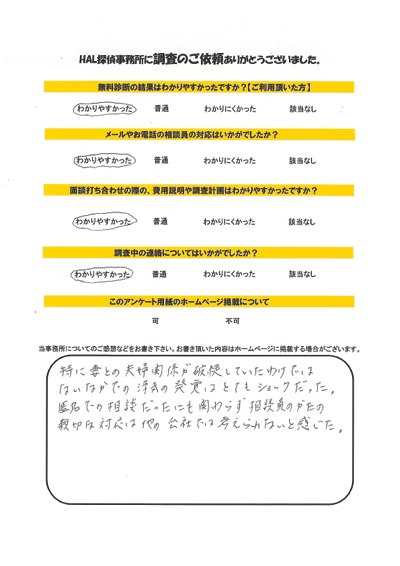 HAL探偵事務所に調査のご依頼ありがとうございました。
無料診断の結果はわかりやすかったですか？【ご利用頂いた方】
わかりやすかった 普通 わかりにくかった 該当なし
メールやお電話の相談員の対応はいかがでしたか？
わかりやすかった 普通 わかりにくかった 該当なし
面談打ち合わせの際の、費用説明や調査計画はわかりやすかったですか？
わかりやすかった 普通 わかりにくかった 該当なし
調査中の連絡についてはいかがでしたか？
わかりやすかった 普通 わかりにくかった 該当なし
このアンケート用紙のホームページ掲載について
可 不可
当事務所についてのご感想などをお書き下さい。お書き頂いた内容はホームページに掲載する場合がございます。
特に妻との夫婦関係が破綻していたわけでは
ないなかでの浮気の発覚はとてもショックだった。
匿名での相談だったにも関わらず相談員のかたの
親切な対応は他の会社では考えられないと感じた。